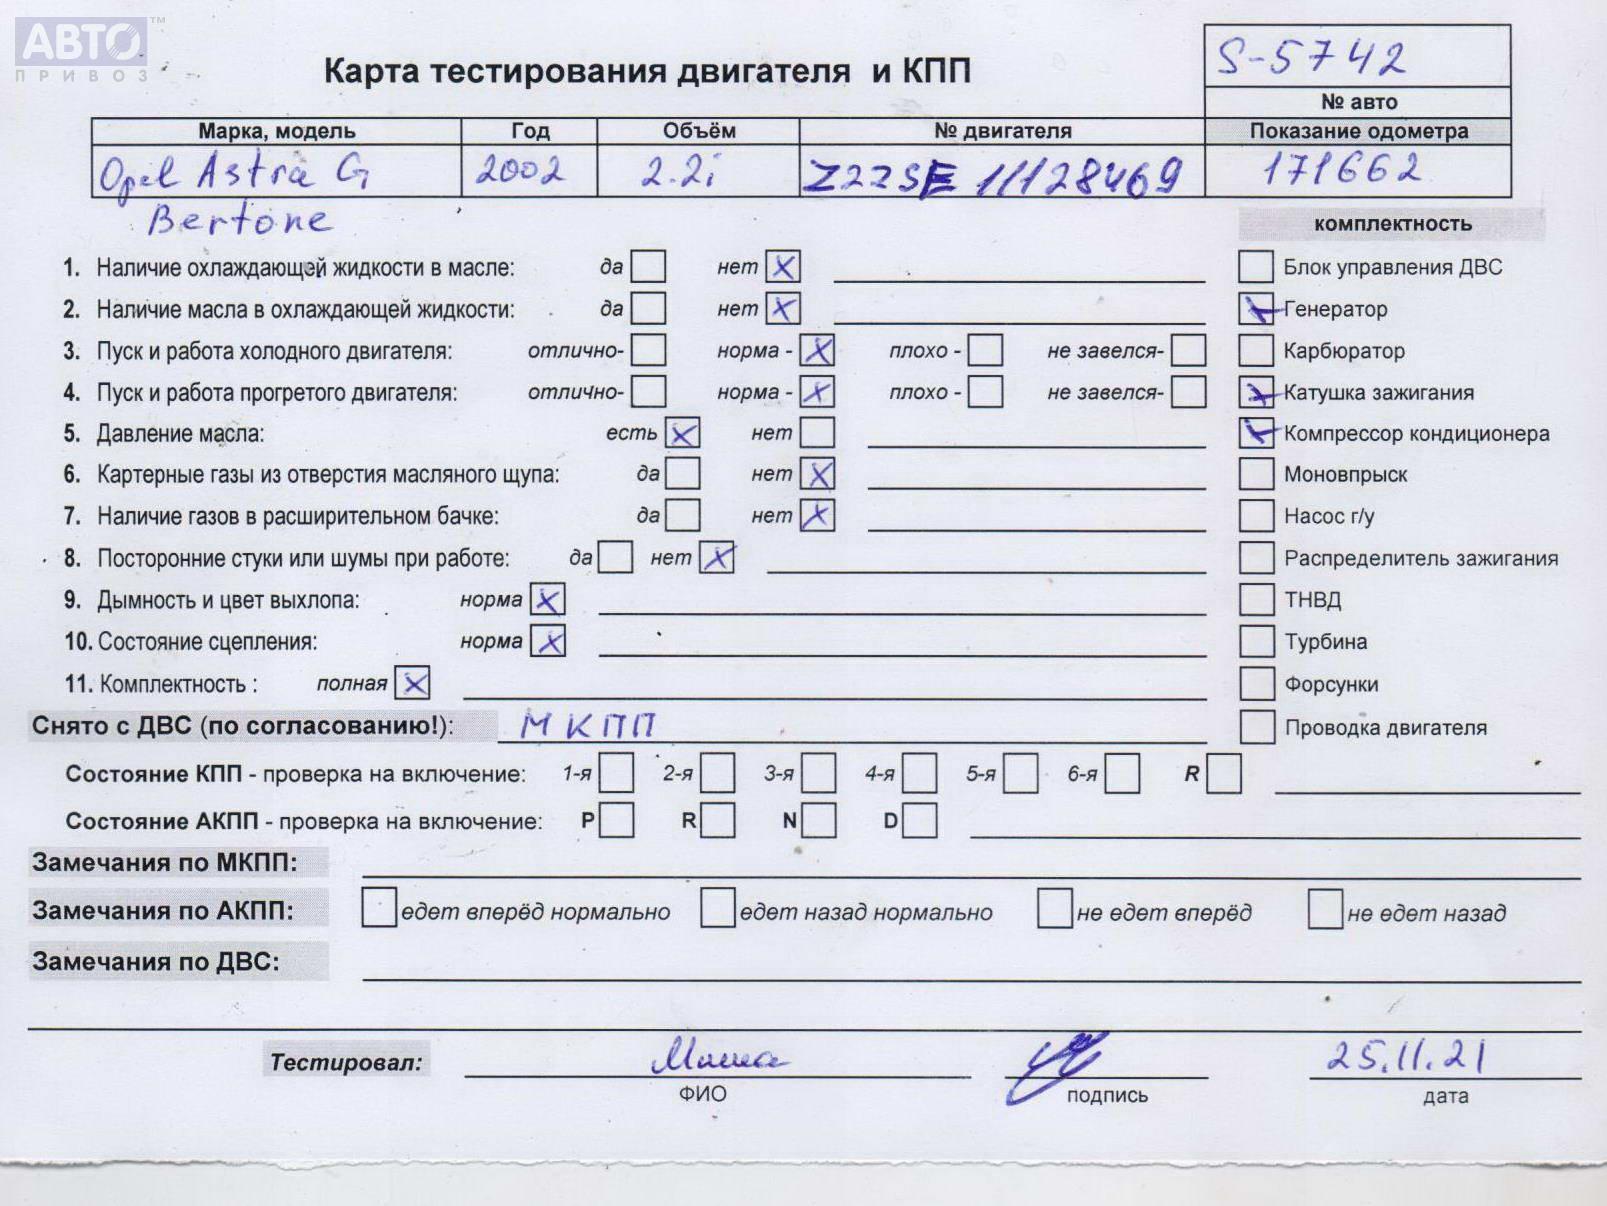 АВТО™
ПРИВОЗ
Карта тестирования двигателя и КПП
S-5742
№ авто
Марка, модель Год Объём № двигателя Показание одометра
Opel Astra G 2002 2.2i Z22SE 11128469 171662
Bertone
комплектность
1. Наличие охлаждающей жидкости в масле: да нет X
Блок управления ДВС
2. Наличие масла в охлаждающей жидкости: да нет X
Генератор
3. Пуск и работа холодного двигателя: отлично- норма - X плохо - не завелся-
Карбюратор
4. Пуск и работа прогретого двигателя: отлично- норма - X плохо - не завелся-
Катушка зажигания
5. Давление масла: есть X нет
Компрессор кондиционера
6. Картерные газы из отверстия масляного щупа: да нет X
Моновпрыск
7. Наличие газов в расширительном бачке: да нет X
Насос г/у
8. Посторонние стуки или шумы при работе: да нет X
Распределитель зажигания
9. Дымность и цвет выхлопа: норма X
ТНВД
10. Состояние сцепления: норма X
Турбина
11. Комплектность : полная X
Форсунки
Снято с ДВС (по согласованию!): МКПП
Проводка двигателя
Состояние КПП - проверка на включение: 1-я 2-я 3-я 4-я 5-я 6-я R
Состояние АКПП - проверка на включение: P R N D
Замечания по МКПП:
Замечания по АКПП: едет вперёд нормально едет назад нормально не едет вперёд не едет назад
Замечания по ДВС:
Тестировал: Миша 25.11.21
ФИО подпись дата